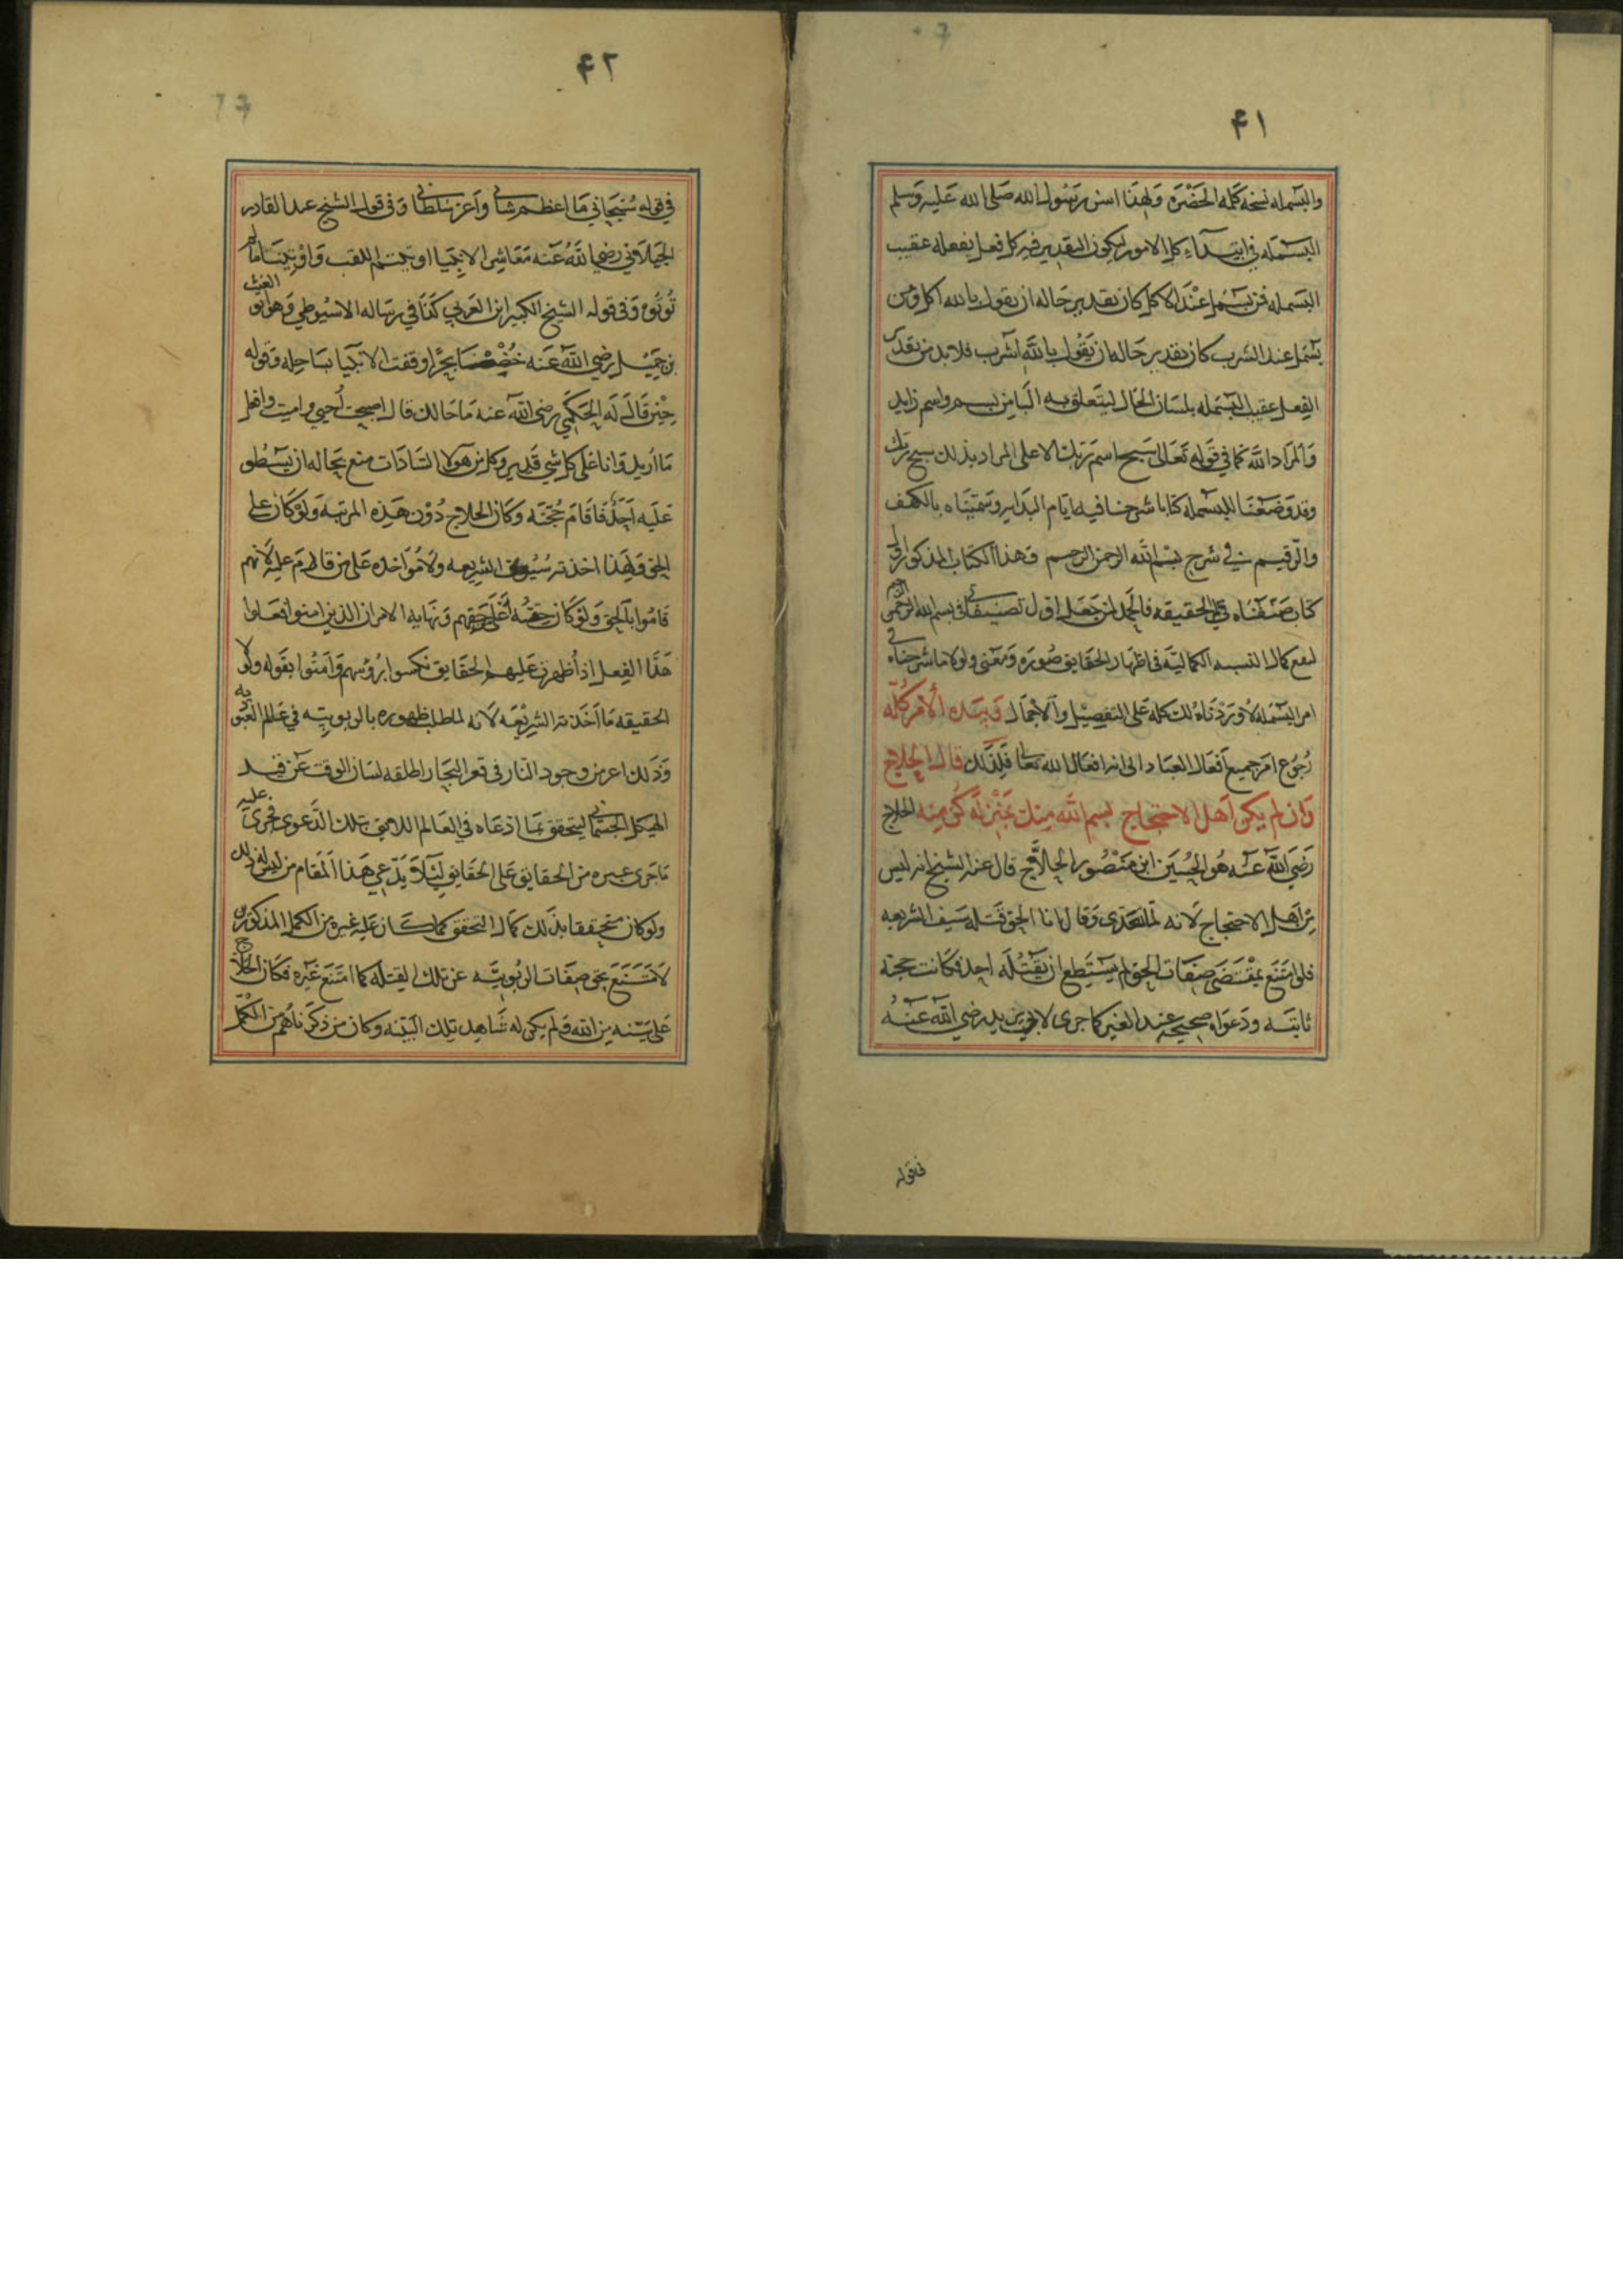 ۴۱
والبسمله نسخه كله الحضره ولهذا اسن رسول الله صلى الله عليه وسلم
البسمله في ابتداء كل الامور ليكون التقدير في كل فعل يفعله عقيب
البسمله فمن بسمل عند الاكل كان تقدير حاله ان يقول بالله اكل ومن
بسمل عند الشرب كان تقدير حاله ان يقول بالله اشرب فلابد من تقدير
الفعل عقيب البسمله بلسان الحال ليتعلق به البا من بسم واسم زايد
والمراد الله كما في قوله تعالى سبح اسم ربك الاعلى المراد بذلك سبح ربك
وقد وضعنا للبسمله كتابا شرحنا فيه ايام البدايه وسميناه بالكهف
والرقيم في شرح بسم الله الرحمن الرحيم وهذا الكتاب المذكور اول
كتاب صنفناه في الحقيقه فالحمد لمن جعل اول تصنيفاتي في بسم الله الرحمن الرحيم
كمال النسبه الكماليه في اظهار الحقايق صوره ومعنى ولولا ما شرحناه في
امر البسمله لاوردناه لك كله على التفصيل والاجمال وبيده الأمر كله
رجوع امر جميع افعال العباد الى انه افعال الله تعالى فلذلك قال الحلاج
وان لم يكن اهل الاحتجاج بسم الله منك بمنزله كن منه الحلاج
رضي الله عنه هو الحسين ابن منصور الحلاج قال عنه الشيخ انه ليس
من اهل الاحتجاج لانه لما تحدى وقال انا الحق قتله سيف الشريعه
فلو امتنع بمقتضى صفات الحق لم يستطع ان يقتله احد فكانت حجته
ثابته ودعواه صحيحه عند الغير كما جرى لابي يزيد رضي الله عنه
في قوله
۴۲
في قوله سبحاني ما اعظم شاني واعز سلطاني وفي قول الشيخ عبد القادر
الجيلاني رضي الله عنه معاشر الانبيا اوتيتم اللقب واوتينا ما لم
تؤتوه وفي قوله الشيخ الكبير ابن العربي كذا في رساله الاسيوطي وهو ابو الغيث
بن جميل رضي الله عنه خضنا بحرا وقفت الانبيا بساحله وقوله
حين قال له الحكمي رضي الله عنه ما حالك قال اصبحت أحيي واميت وافعل
ما اريد وانا على كل شي قدير وكل من هولا السادات منع بحاله ان يسطو
عليه احد فاقام حجته وكان الحلاج دون هذه المرتبه ولو كان على
الحق ولهذا اخذته سيوف الشريعه ولا مؤاخذه على من قام عليه لانهم
قاموا بالحق ولو كان حقه اعلى من حقهم ونهايه الامر ان الذين امنوا فعلوا
هذا الفعل اذا ظهرت عليهم الحقايق نكسوا برؤسهم وامنوا بقوله ولولا
الحقيقه ما اخذته الشريعه لانه لما طلب ظهوره بالربوبيه في عالم العبوديه
وذلك اعز من وجود النار في قعر البحار اطلقه لسان الوقت عن قيد
الهيكل الجسماني ليتحقق بما ادعاه في العالم اللايق بتلك الدعوى فجرى عليه
ما جرى غيره من الحقايق على الحقايق لئلا يدعي هذا المقام من ليس له ذلك
ولو كان متحققا بذلك كمال التحقق كما كان عليه غيره من الكمل المذكورين
لامتنع بحق صفات الربوبيه عن تلك لقتله كما امتنع غيره فكان الحلاج
على بينه من الله ولم يكن له شاهد بتلك البينه وكان من ذكرناهم من الكمل